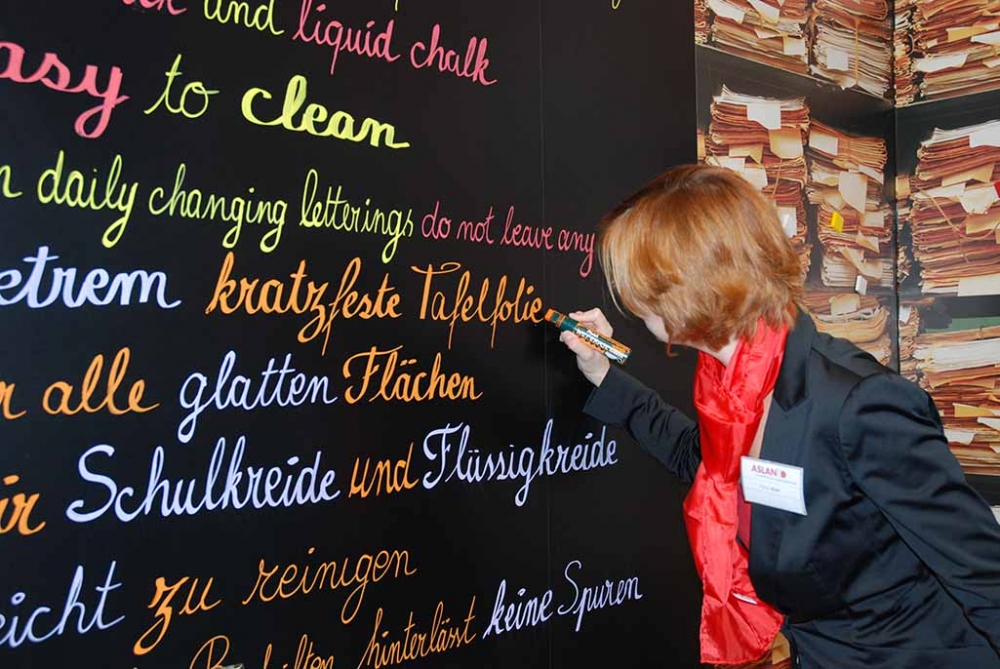 and liquid chalk
easy to clean
daily changing letterings do not leave any
extrem kratzfeste Tafelfolie
alle glatten Flächen
für Schulkreide und Flüssigkreide
leicht zu reinigen
hinterlässt keine Spuren
ASLAN